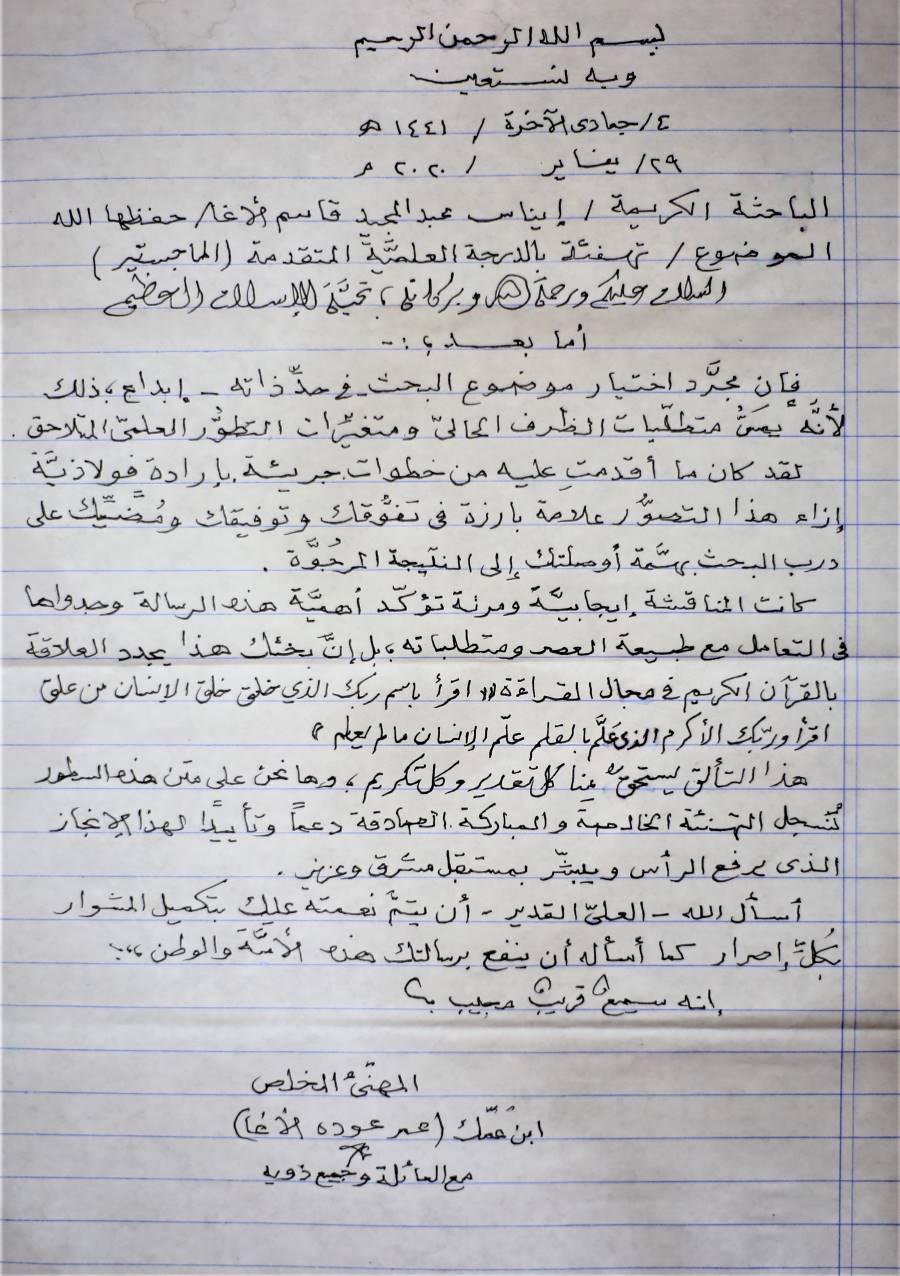 بسم الله الرحمن الرحيم
وبه نستعين
٤/جمادى الآخرة / ١٤٤١ هـ
٢٩/ يناير / ٢٠٢٠ م
الباحثة الكريمة / إيناس عبد المجيد قاسم الأغا/ حفظها الله
الموضوع / تهنئة بالدرجة العلميَّة المتقدمة (الماجستير)
السلام عليكم ورحمة الله وبركاته ، تحيَّة الإسلام العظيم
أما بعــد ؛ :-
فإن مجرَّد اختيار موضوع البحث في حدِّ ذاته - إبداع ، ذلك
لأنَّه يمسُّ متطلّبات الظرف الحاليّ ومتغيّرات التطوُّر العلميّ المتلاحق .
لقد كان ما أقدمتِ عليه من خطوات جريئة بإرادة فولاذيَّة
إزاء هذا التصوُّر علامة بارزة في تفوُّقك وتوفيقك ومُضيِّك على
درب البحث بهمَّة أوصلتك إلى النتيجة المرجُوَّة .
كانت المناقشة إيجابيَّة ومرنة تؤكّد أهميَّة هذه الرسالة وجدواها
في التعامل مع طبيعة العصر ومتطلباته ، بل إنَّ بحثك هذا يجدد العلاقة
بالقرآن الكريم في مجال القراءة " اقرأ باسم ربك الذي خلق خلق الإنسان من علق
اقرأ وربّك الأكرم الذي علَّم بالقلم علّم الإنسان ما لم يعلم "
هذا التألق يستحقّ منا كل تقدير وكل تكريم ، وها نحن على متن هذه السطور
نُسجل التهنئة الخالصة والمباركة الصادقة دعماً وتأييداً لهذا الإنجاز
الذي يرفع الرأس ويبشّر بمستقبل مشرق وعزيز .
أسأل الله - العليّ القدير - أن يتمَّ نعمته عليك بتكميل المشوار
بكُلِّ إصرار كما أسأله أن ينفع برسالتك هذه الأمَّة والوطن ،،،
إنه سميعٌ قريبٌ مجيب
المهنّئ المخلص
ابن عمّك (عمر عوده الأغا)
مع العائلة وجميع ذويه